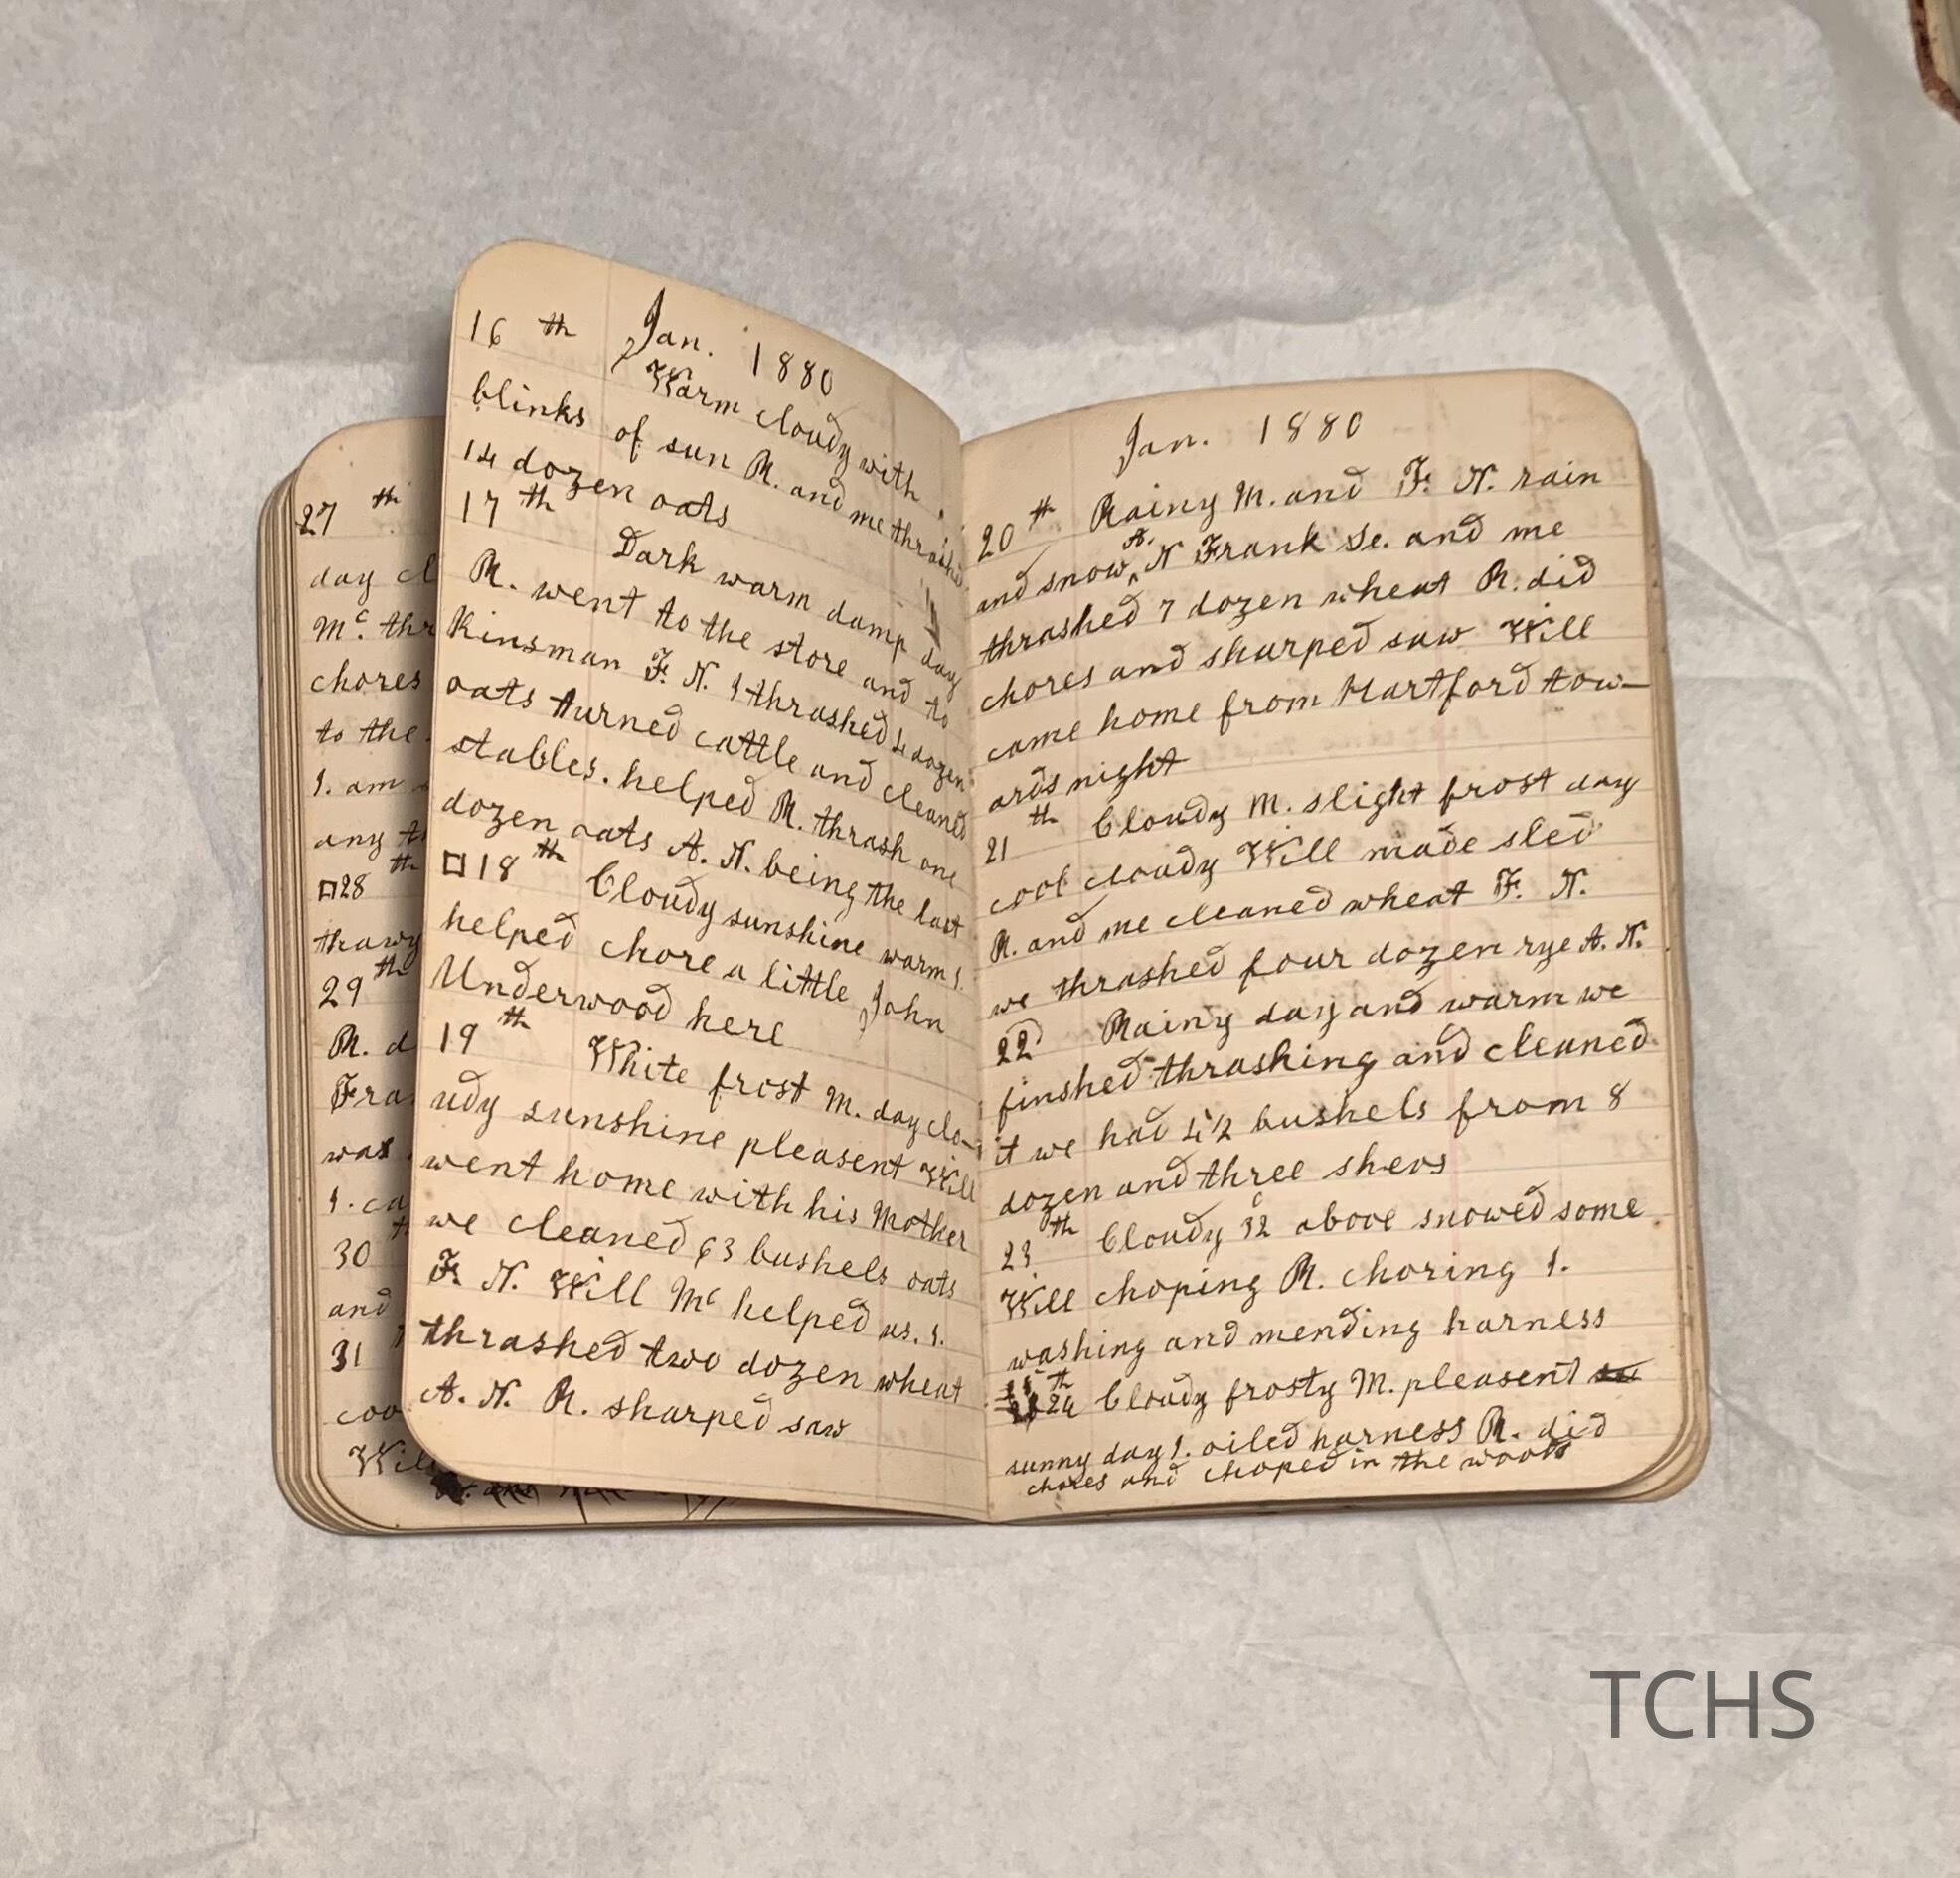 27 th
day cl
Mc. thr
chores
to the
1. am
any
28 th
thawy
29 th
R. d
Fra
was
1. ca
30
and
31
coo
Will
16 th Jan. 1880
Warm cloudy with
blinks of sun R. and me thrashed
14 dozen oats
17 th Dark warm damp day
R. went to the store and to
Kinsman F. N. I thrashed 4 dozen
oats turned cattle and cleaned
stables. helped R. thrash one
dozen oats A. N. being the last
18 th Cloudy sunshine warm I.
helped chore a little John
Underwood here
19 th White frost M. day clo-
udy sunshine pleasent Will
went home with his Mother
we cleaned 63 bushels oats
F. N. Will Mc helped us. I.
thrashed two dozen wheat
A. N. R. sharped saw
Jan. 1880
20 th Rainy M. and F. N. rain
and snow A. N Frank Se. and me
thrashed 7 dozen wheat R. did
chores and sharped saw Will
came home from Hartford tow-
ards night
21 th Cloudy M. slight frost day
cool cloudy Will made sled
R. and me cleaned wheat F. N.
we thrashed four dozen rye A. N.
22 Rainy day and warm we
finshed thrashing and cleaned
it we had 4 1/2 bushels from 8
dozen and three shevs
23 th Cloudy 32 above snowed some
Will choping R. choring I.
washing and mending harness
24 th Cloudy frosty M. pleasent
sunny day I. oiled harness R. did
chores and choped in the woods
TCHS